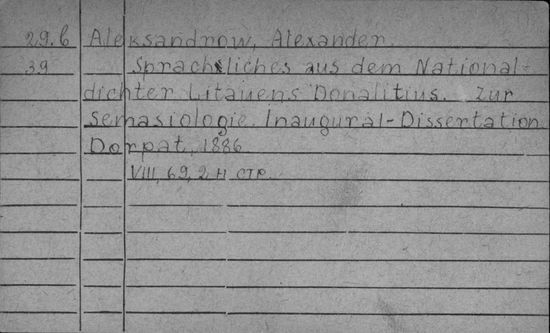 29.b Aleksandrow, Alexander.
39 Sprachliches aus dem National-
dichter Litauens Donalitius. Zur
Semasiologie. Inaugural-Dissertation
Dorpat, 1886
VIII, 69, 2 н. стр.